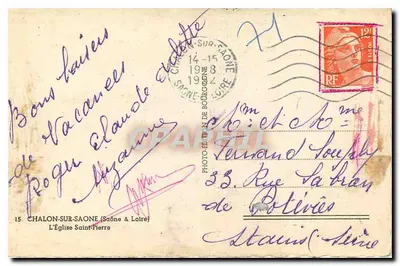 Bons baisers
de Vacances
Roger Claude
Suzanne
15 CHALON-SUR-SAONE (Saône & Loire)
L'Église Saint-Pierre
CHALON-SUR-SAONE
14-15
1952
SAONE-ET-LOIRE
PHOTO-ÉDIT. DE BOURGOGNE
71
12F
RF
Mr et Mme
Fernand
33 Rue Sabran
de
Stains (Seine